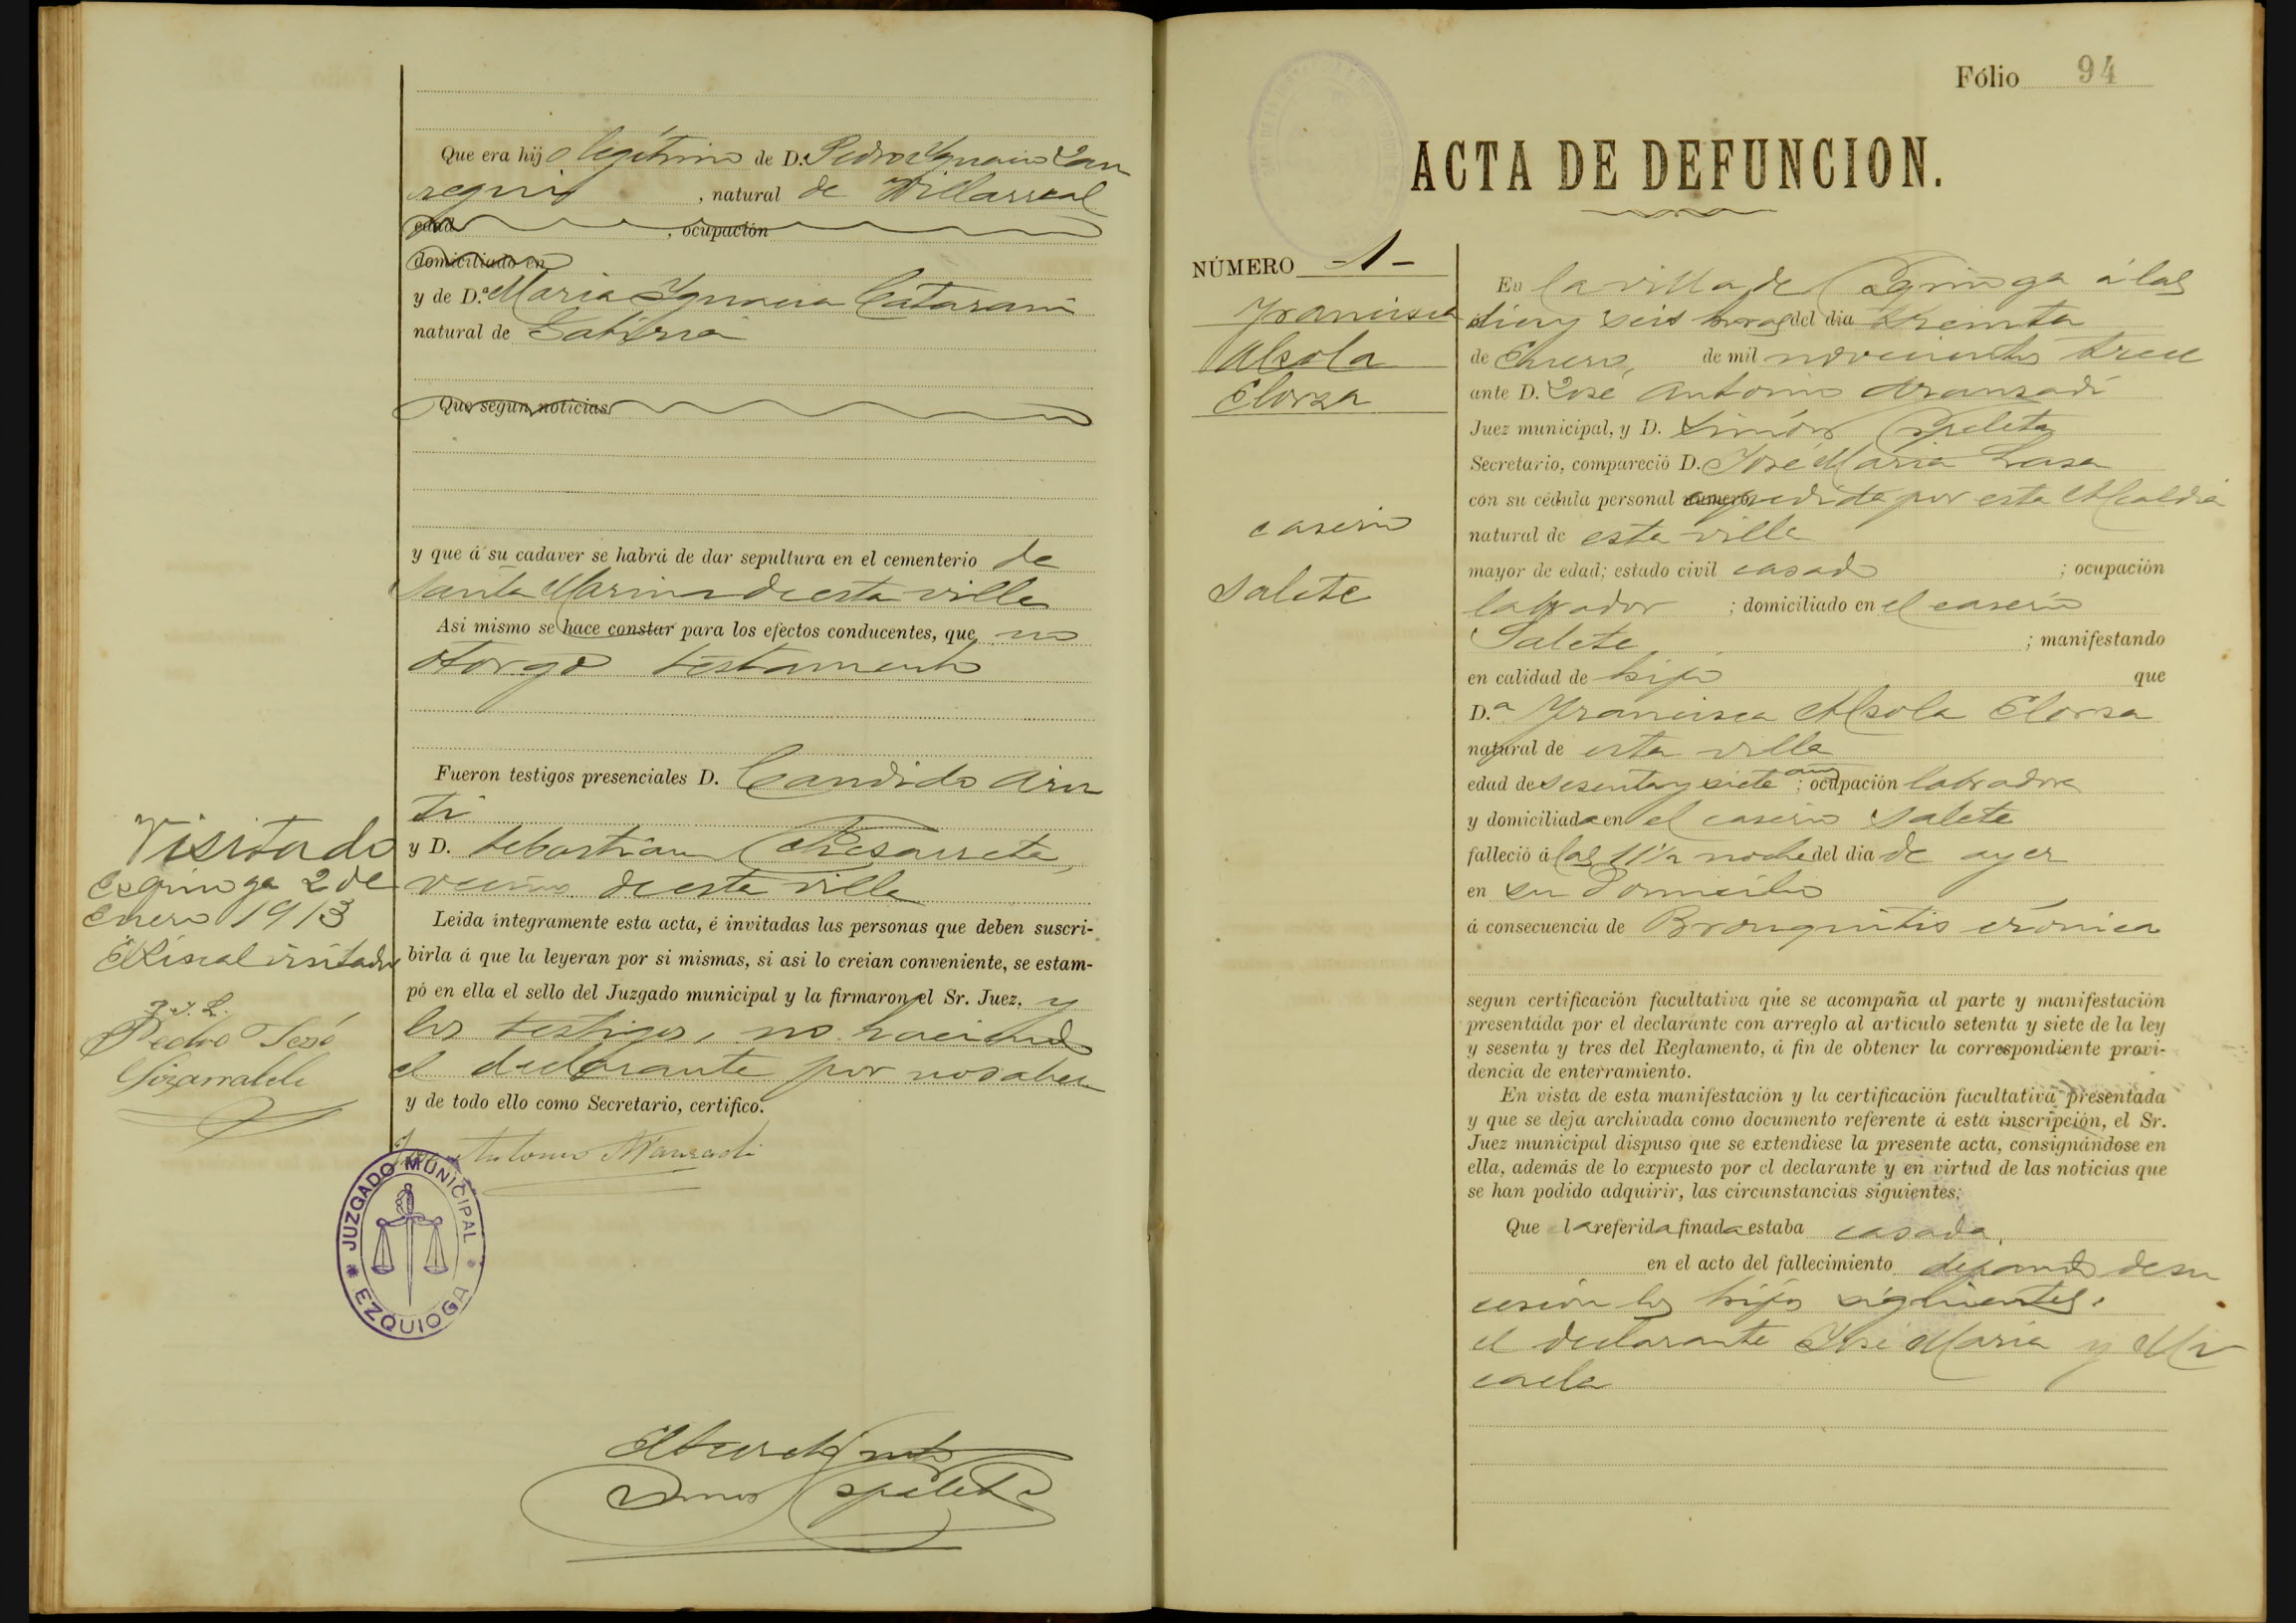 Que era hijo legítimo de D. Pedro Ygnacio Jau
regui, natural de Villarreal
edad, ocupación
domiciliado en
y de D.ª Maria Ygnacia Catarain
natural de
Que segun noticias
y que á su cadaver se habrá de dar sepultura en el cementerio de
Santa Marina de esta villa
Asi mismo se hace constar para los efectos conducentes, que no
otorgó testamento
Fueron testigos presenciales D. Candido Aris
ti
y D. Sebastián
vecinos de esta villa
Leida íntegramente esta acta, é invitadas las personas que deben suscri-
birla á que la leyeran por si mismas, si asi lo creian conveniente, se estam-
pó en ella el sello del Juzgado municipal y la firmaron el Sr. Juez, y
los testigos, no haciendo
el declarante por no saber
y de todo ello como Secretario, certifico.
José Antonio Aranzadi
JUZGADO MUNICIPAL
* EZQUIOGA *
Simón Ezpeleta
Visitado
Ezquioga 2 de
Enero 1913
El Fiscal visitador
Pedro José
Lizarralde
Fólio 94
ACTA DE DEFUNCION.
NÚMERO -1-
Francisca
Alsola
Elorza
caserio
Salete
En la villa de Ezquioga á las
diez y seis horas del dia treinta
de Enero, de mil novecientos trece
ante D. José Antonio Aranzadi
Juez municipal, y D. Simón Ezpeleta
Secretario, compareció D. José Maria Lasa
con su cédula personal número expedida por esta Alcaldia
natural de esta villa
mayor de edad; estado civil casado ; ocupación
labrador ; domiciliado en el caserio
Salete ; manifestando
en calidad de hijo que
D.ª Francisca Alsola Elorza
natural de esta villa
edad de sesenta y siete años ; ocupación labradora
y domiciliada en el caserio Salete
falleció á las 11 1/2 noche del dia de ayer
en su domicilio
á consecuencia de Bronquitis crónica
segun certificación facultativa que se acompaña al parte y manifestación
presentada por el declarante con arreglo al artículo setenta y siete de la ley
y sesenta y tres del Reglamento, á fin de obtener la correspondiente provi-
dencia de enterramiento.
En vista de esta manifestación y la certificación facultativa presentada
y que se deja archivada como documento referente á esta inscripción, el Sr.
Juez municipal dispuso que se extendiese la presente acta, consignándose en
ella, además de lo expuesto por el declarante y en virtud de las noticias que
se han podido adquirir, las circunstancias siguientes:
Que la referida finada estaba casada,
en el acto del fallecimiento dejando de su
cesión los hijos siguientes:
el declarante José Maria y Mi
caela